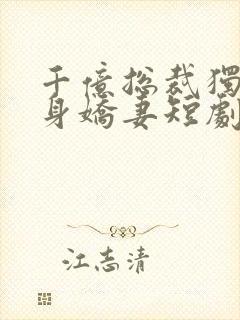 千億總裁獨
身嬌妻短劇
江志清